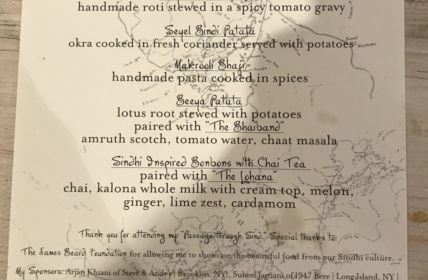 handmade roti stewed in a spicy tomato gravy
Seyel Bindi Patata
okra cooked in fresh coriander served with potatoes
Makrooli Bhaji
handmade pasta cooked in spices
Beeya Patata
lotus root stewed with potatoes
paired with "The Bhaiband"
amruth scotch, tomato water, chaat masala
Sindhi Inspired Bonbons with Chai Tea
paired with "The Lohana"
chai, kalona whole milk with cream top, melon,
ginger, lime zest, cardamom
Thank you for attending my "Passage through Sind." Special thanks to:
The James Beard Foundation for allowing me to showcase the beautiful food from our Sindhi culture.
My Sponsors: Arjan Khiani of Steve & Andy's | Brooklyn, NY |, Suheel Jagnani of 1947 Beer | Long Island, NY |